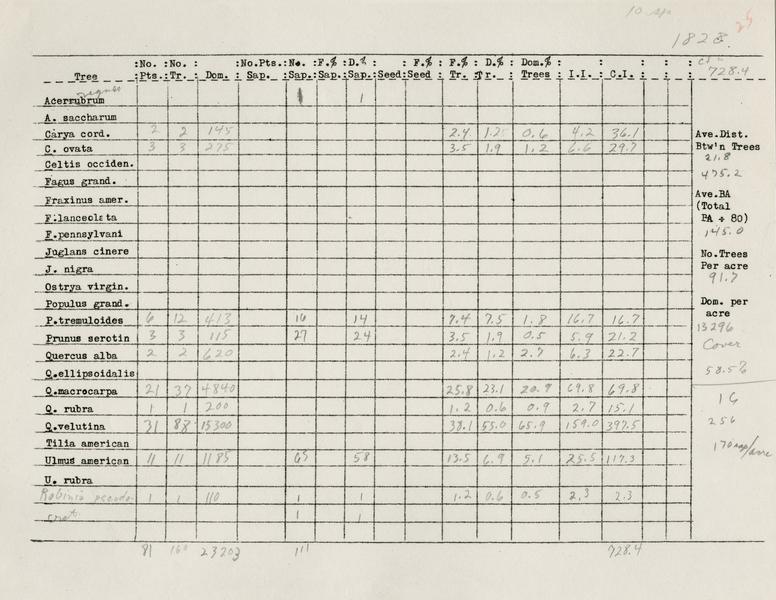 10 sp.
25
1828.
:No. :No. : :No.Pts.:No. :F.% :D.% : : F.% : F.% : D.% : Dom.% : : : : :
728.4
Tree :Pts.:Tr. : Dom. : Sap. :Sap.:Sap.:Sap.:Seed:Seed : Tr. :Tr. : Trees : I.I. : C.I. : : :
negun
Acerrubrum 1
A. saccharum
Carya cord. 2 2 145 2.4 1.2 0.6 4.2 36.1
Ave.Dist.
C. ovata 3 3 275 3.5 1.9 1.2 6.6 29.7
Btw'n Trees
21.8
Celtis occiden.
475.2
Fagus grand.
Fraxinus amer.
Ave.BA
(Total
F.lanceolata
BA ÷ 80)
F.pennsylvani
145.0
Juglans cinere
No.Trees
J. nigra
Per acre
91.7
Ostrya virgin.
Populus grand.
Dom. per
acre
P.tremuloides 6 12 413 16 14 7.4 7.5 1.8 16.7 16.7
13296
Prunus serotin 3 3 115 27 24 3.5 1.9 0.5 5.9 21.2
Cover
Quercus alba 2 2 620 2.4 1.2 2.7 6.3 22.7
Q.ellipsoidalis
58.56
Q.macrocarpa 21 37 4840 25.8 23.1 20.9 69.8 69.8
16
Q. rubra 1 1 200 1.2 0.6 0.9 2.7 15.1
256
Q.velutina 31 88 15300 38.1 55.0 65.9 159.0 397.5
Tilia american
170 sap/acre
Ulmus american 11 11 1185 65 58 13.5 6.9 5.1 25.5 117.3
U. rubra
Robinia pseudo- 1 1 110 1 1 1.2 0.6 0.5 2.3 2.3
crat. 1 1
81 160 23203 111 728.4